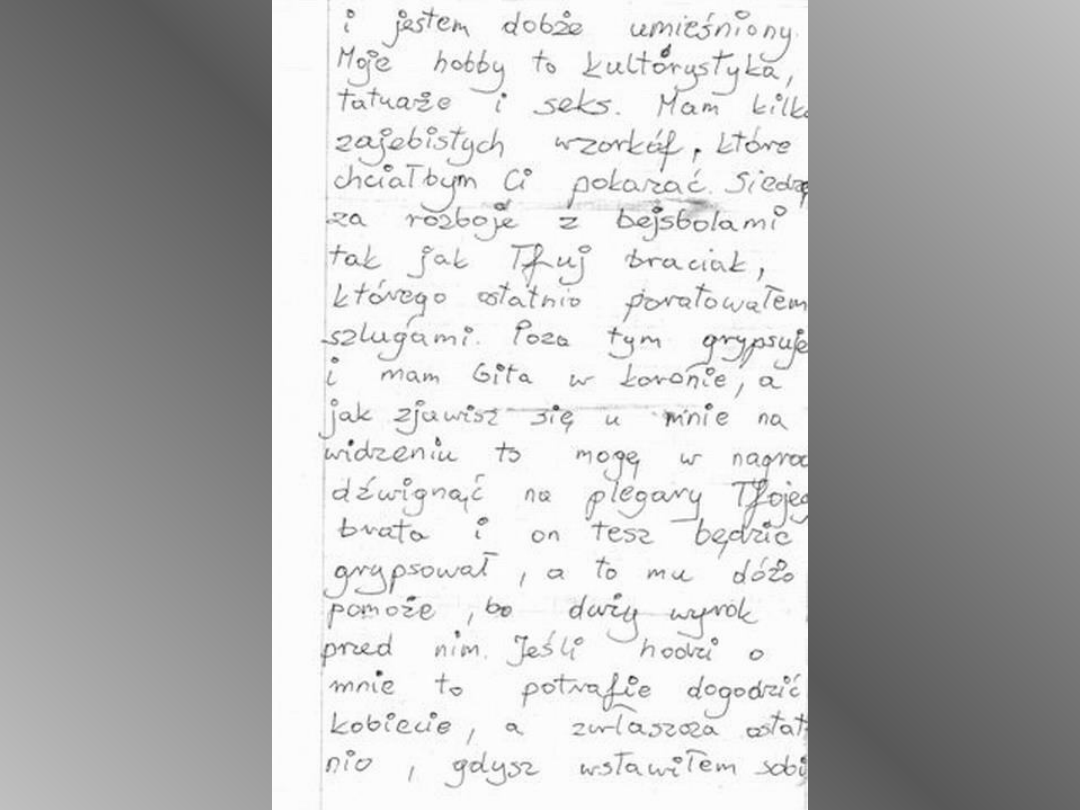 i jestem dobże umieśniony.
Moje hobby to kultórystyka,
tatuaże i seks. Mam kilka
zajebistych wzorkóf, które
chciałbym Ci pokazać. Siedzę
za rozboje z bejsbolami
tak jak Tfuj braciak,
którego ostatnio poratowałem
szlugami. Poza tym grypsuje
i mam Gita w koronie, a
jak zjawisz się u mnie na
widzeniu to mogę w nagrod
dźwignąć na plegary Tfojeg
brata i on tesz będzie
grypsował, a to mu dóżo
pomoże, bo duży wyrok
przed nim. Jeśli hodzi o
mnie to potrafie dogodzić
kobiecie, a zwłaszcza ostat
nio, gdysz wstawiłem sobi